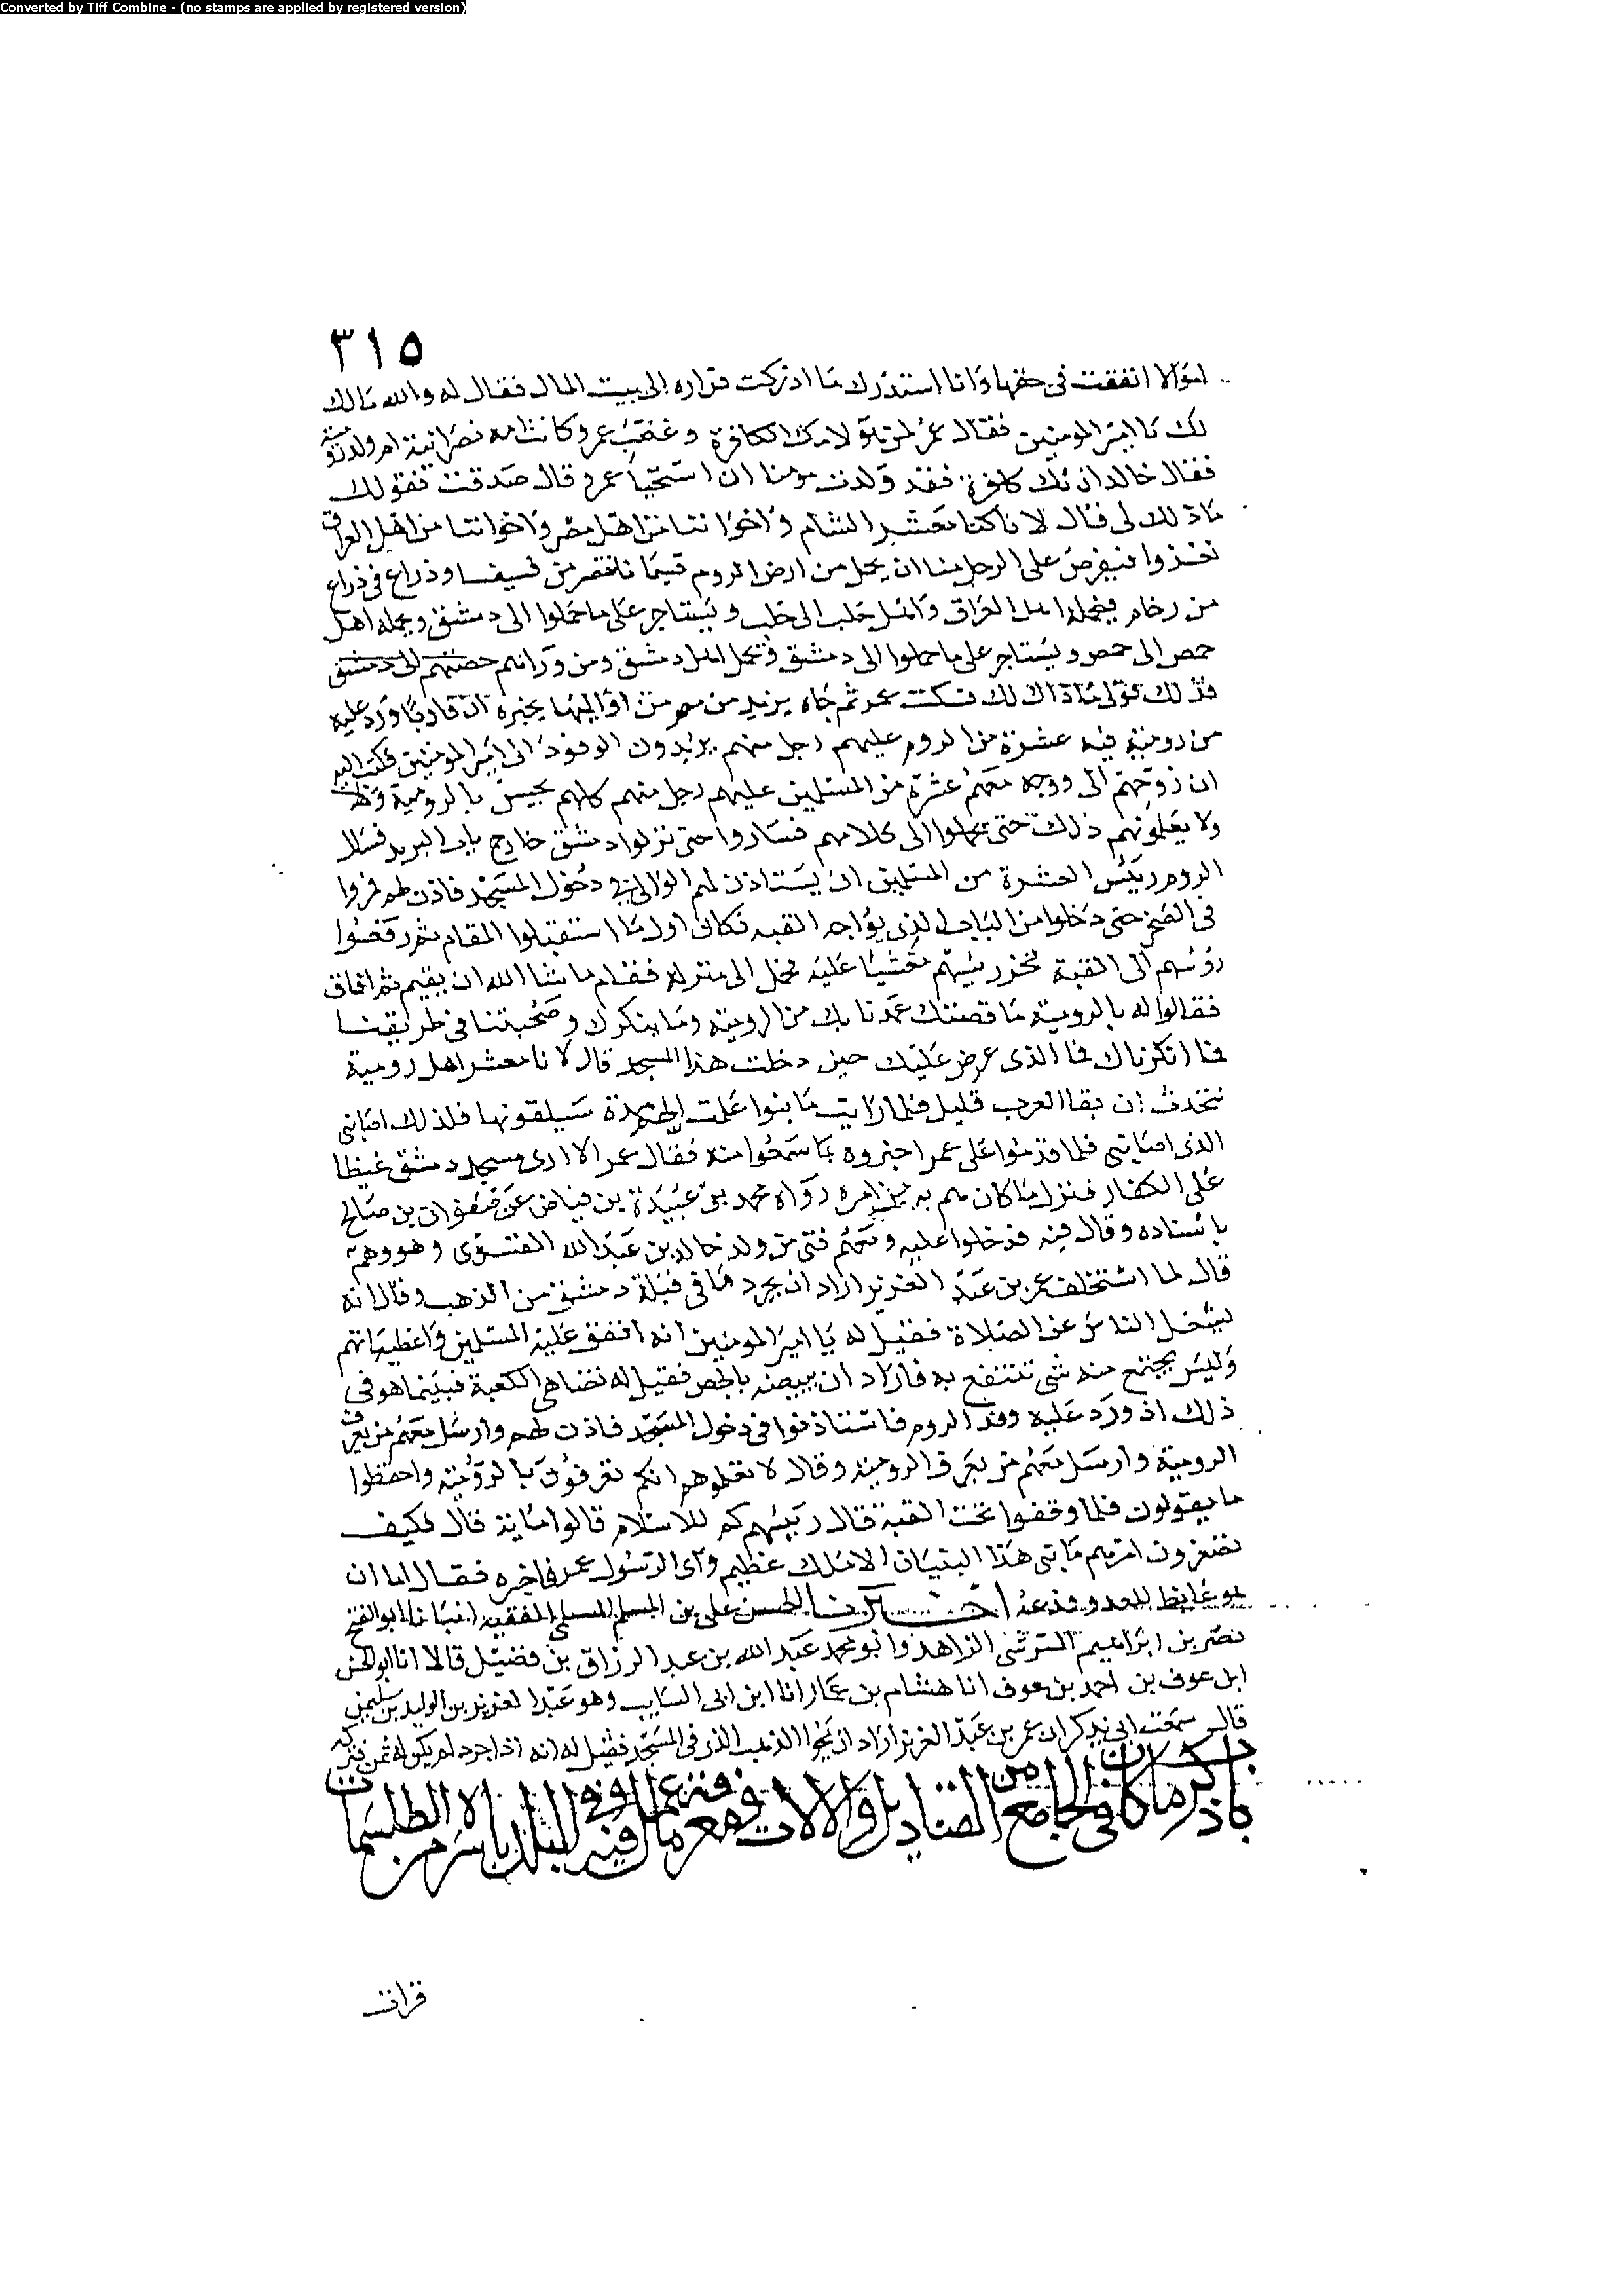 Converted by Tiff Combine - (no stamps are applied by registered version)
٣١٥
اموالا انفقت فى حقها وانا استدرك ما ادركت فراده الى بيت المال فقال له والله ما لك
لك يا امير المومنين فقال عمر لامك الكافرة وغضب عمر وكانت امه نصرانية ام ولد
فقال خالد ان تك كافرة فقد ولدت مومنا ان استحيا عمر وقال صدقت فقولك
ما ذلك لى قال لانا كنا معشر الشام واخواننا من اهل مصر واخواننا من اهل العراق
نغذوا فنيفرض على الرجل منا ان يحمل من ارض الروم فسيفسا وذراع فى ذراع
من رخام فيحمله اهل العراق واهل حلب الى حلب ويستاجر على ما حملوا الى دمشق ويحمله اهل
حمص الى حمص ويستاجر على ما حملوا الى دمشق وتحمل اهل دمشق ومن ورائهم حصتهم الى دمشق
فذلك قولى ما ذاك لك فسكت عمر ثم جاه بريد من مصر من يخبره ان قاربا ورد عليه
من رومية فيه عشرة من الروم عليهم رجل منهم يريدون الوفود الى امير المومنين فكتب اليه
ان الى ووجه معهم عشرة من المسلمين عليهم رجل منهم كلهم يحسن بالرومية
ولا يعلمونهم ذلك حتى الى كلامهم فساروا حتى نزلوا دمشق خارج باب البريد فسال
الروم رييس العشرة من المسلمين ان يستاذن لهم الوالى فى دخول المسجد فاذن لهم فمروا
فى الصحن حتى دخلوا من الباب الذى يواجه القبه فكان اول ما استقبلوا المقام ثم رفعوا
روسهم الى القبة فخر رييسهم مغشيا عليه فحمل الى منزله فقام ما شا الله ان يقيم ثم افاق
فقالوا له بالرومية ما قصتك عهدنا بك من رومية وما ننكرك وصحبتنا فى طريقنا
فما انكرناك فما الذى عرض عليك حين دخلت هذا المسجد قال لانا معشر اهل رومية
نتحدث ان بقا العرب قليل فلما رايت ما بنوا علمت ان لهم مدة سيلقونها فلذلك اصابنى
الذى اصابنى فلما قدموا على عمر اخبروه بما سمعوا منه فقال عمر الا ارى مسجد دمشق غيظا
على الكفار فنزل ما كان هم به من امره رواه محمد بن عبيدة بن فياض عن صفوان بن صالح
باسناده وقال فيه فدخلوا عليه ومعهم فتى من ولد خالد بن عبد الله القسرى وهو وهم
قال لما استخلف عمر بن عبد العزيز اراد ان يجرد ما فى قبلة دمشق من الذهب وقال انه
ليشغل الناس عن الصلاة فقيل له يا امير المومنين انه انفق عليه المسلمين واعطياتهم
وليس يجتمع منه شى تنتفع به فاراد ان يبيضه بالجص فقيل له تضاهى الكعبة فبينما هو فى
ذلك اذ ورد عليه وفد الروم فاستاذنوا فى دخول المسجد فاذن لهم وارسل معهم من يعرف
الرومية وارسل معهم من يعرف الرومية وقال لا تعلموهم انكم تعرفون بالرومية واحفظوا
ما يقولون فلما وقفوا تحت القبة قال رييسهم كم للاسلام قالوا ماية قال فكيف
تصغرون امرهم ما بنى هذا البنيان الا ملك عظيم واى الرسول عمر فاخبره فقال اما ان
هو غايظ للعدو فدعه اخبرنا ابو الحسن على بن المسلم السلمى الفقيه انبانا ابو الفتح
نصر بن ابراهيم الزاهد وابو محمد عبد الله بن عبد الرزاق بن فضيل قالا انا ابو الحسن
ابن عوف بن احمد بن عوف انا هشام بن عمار انا ابن ابى السايب وهو عبد العزيز بن الوليد بن سليمن
قال سمعت ابى يذكر ان عمر بن عبد العزيز اراد ان الذهب الذى فى المسجد فقيل له انه اذا جرد لم يكن له ثمن فتركه
باب ذكر ما كان فى الجامع من القناديل والالات ومعرفة ما عمل فيه وفى البلد باسره من الطلسمات
قرات